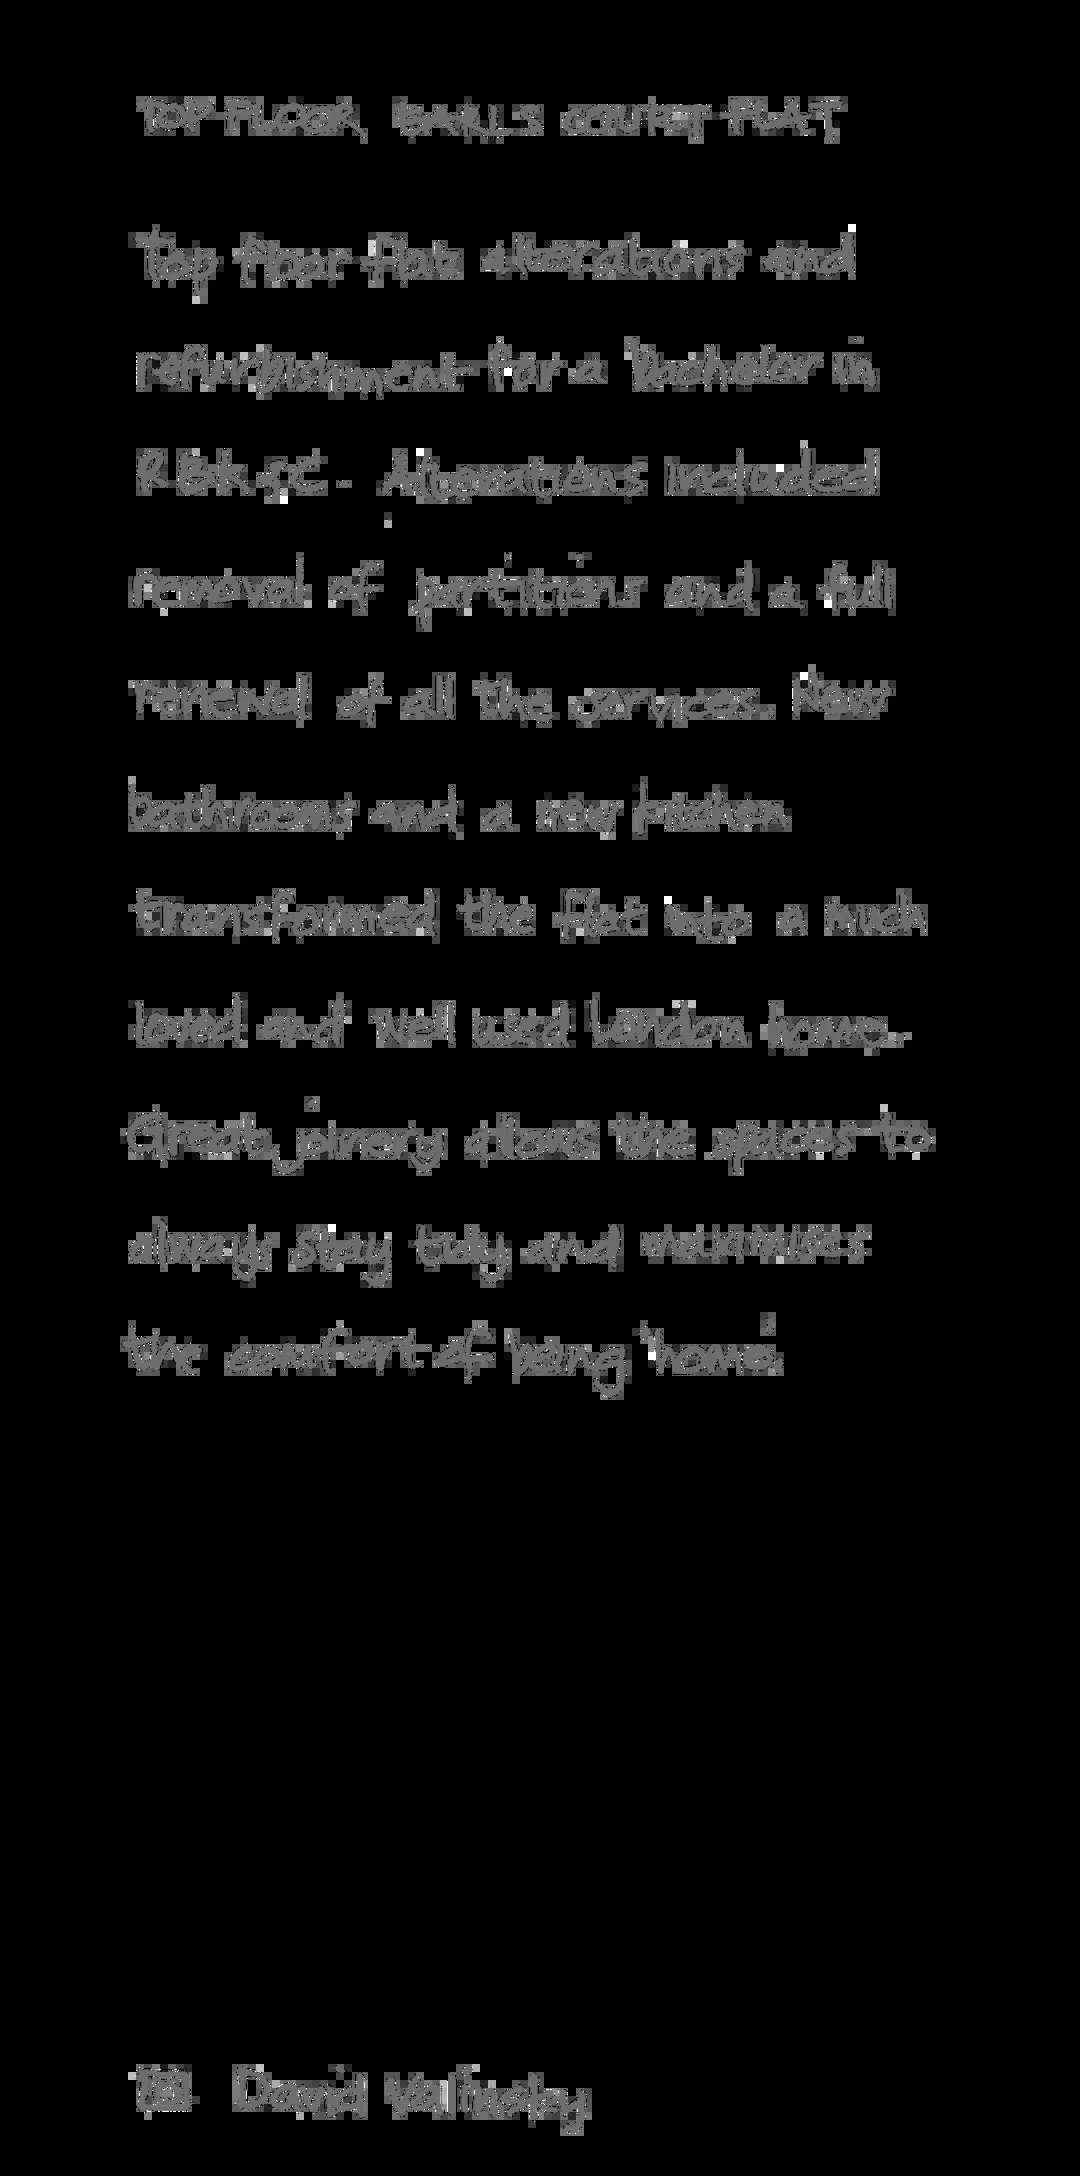 TOP FLOOR, EARLS COURT FLAT
Top floor flat alterations and
refurbishment for a bachelor in
RBK&C. Alterations included
removal of partitions and a full
renewal of all the services. New
bathrooms and a new kitchen
transformed the flat into a much
loved and well used London home.
Great joinery allows the spaces to
always stay tidy and maximises
the comfort of being 'home'.
David Valinsky